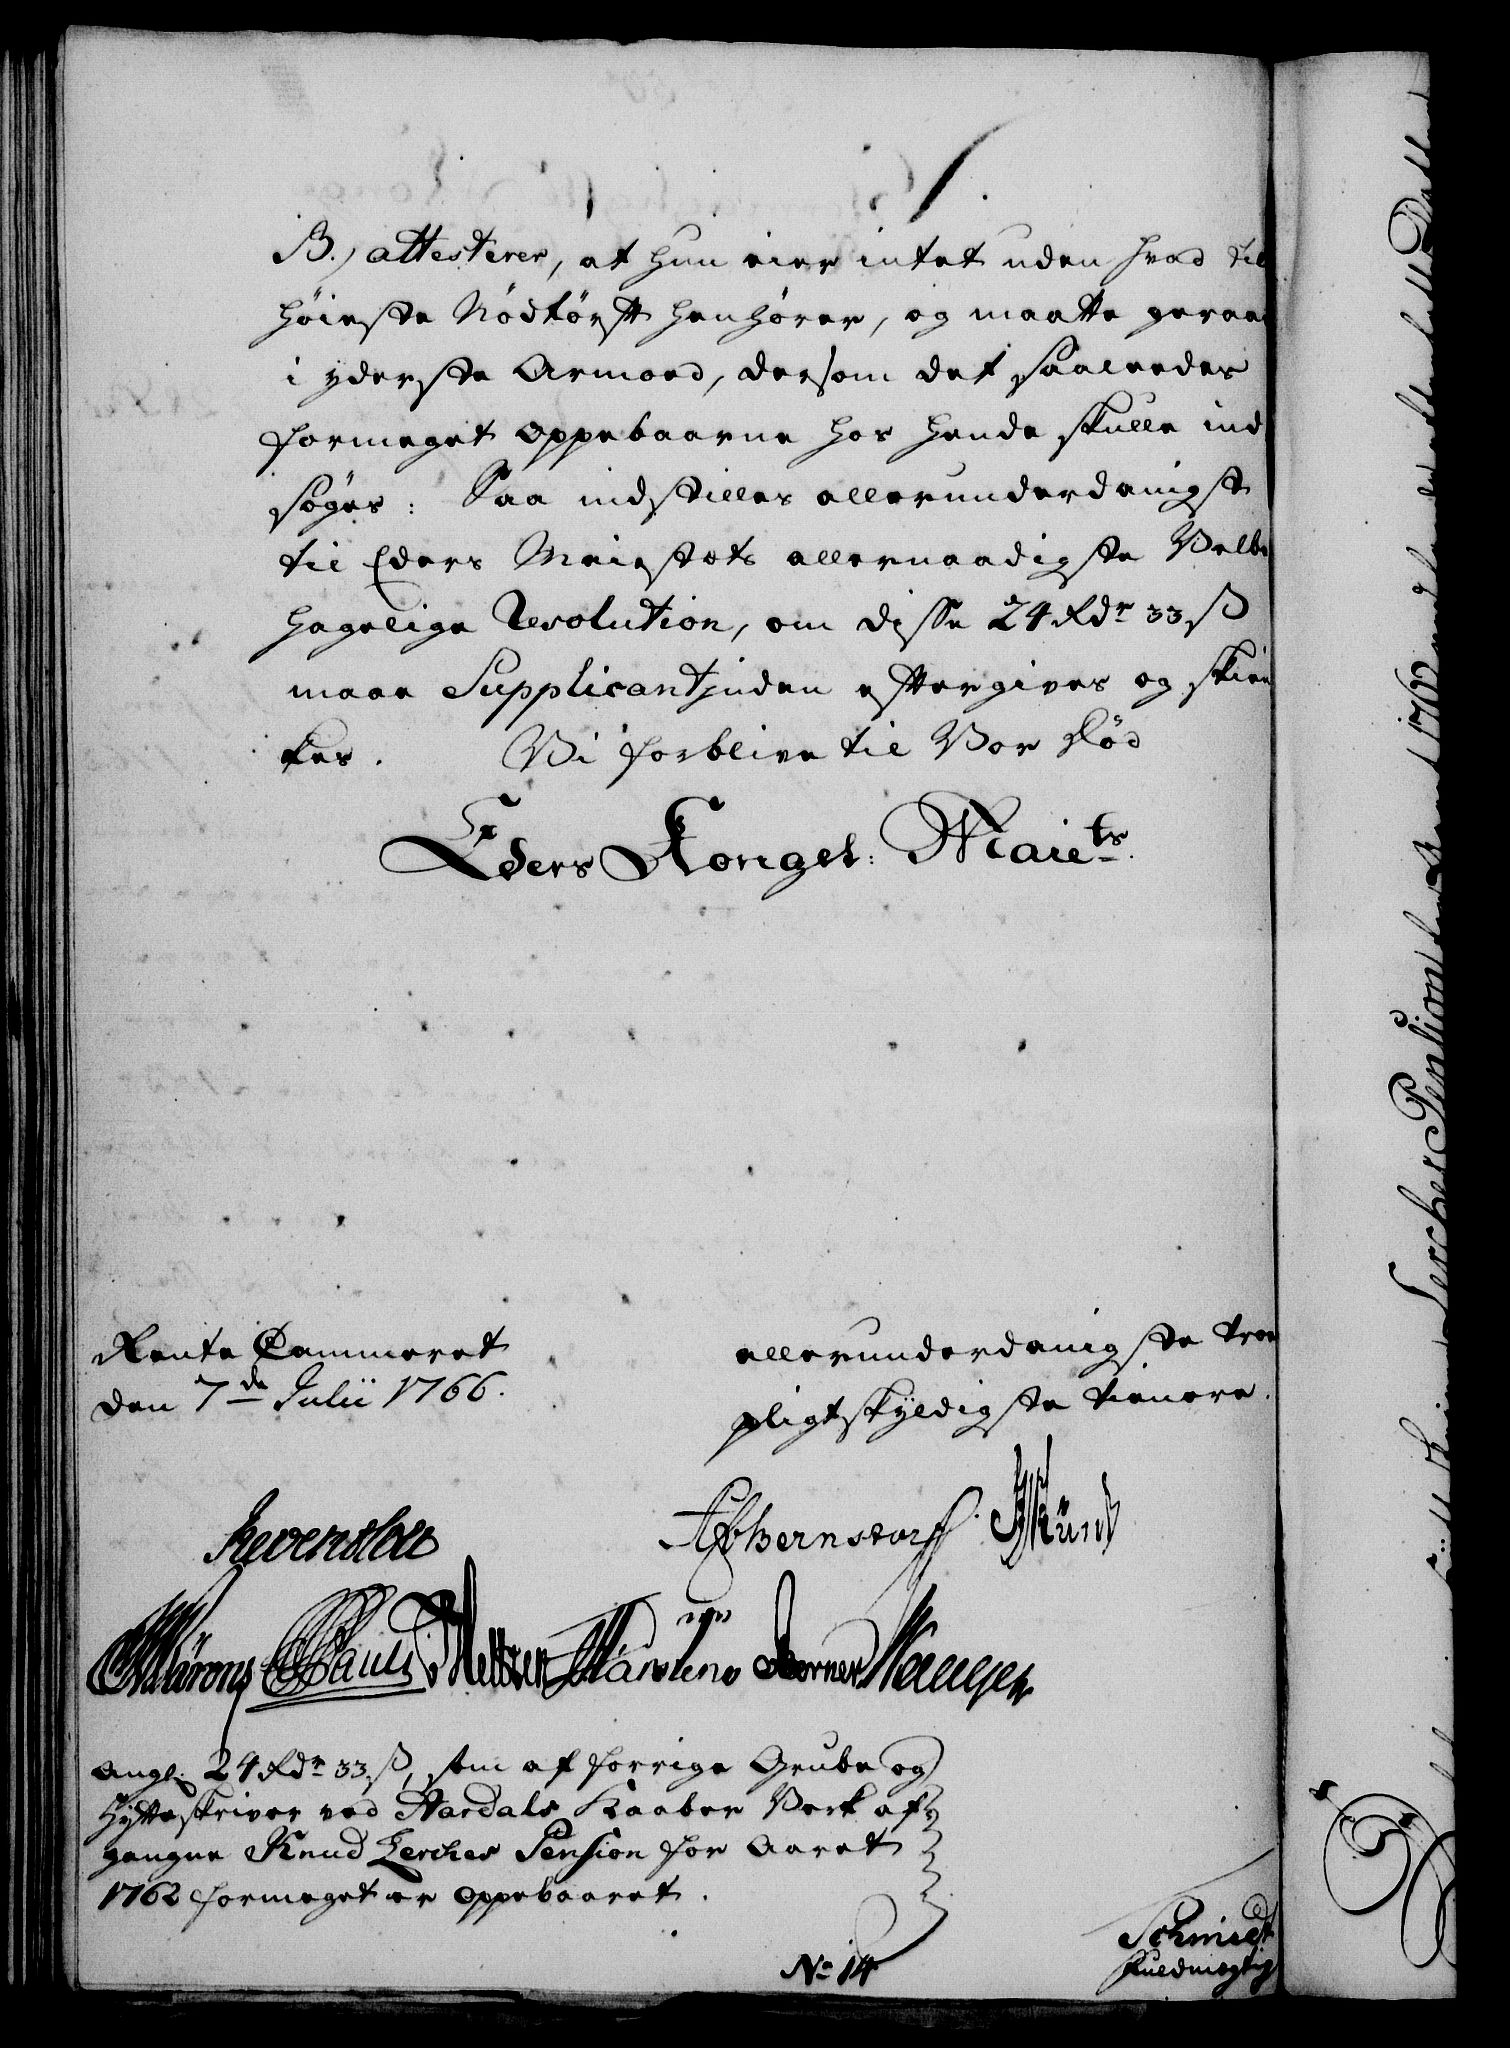 B.) attesterer, at hun eier intet uden hvad til
höieste Nödtörft henhörer, og maatte geraa
i yderste Armoed, dersom det saaleedes
formeget oppebaarne hos hende skulle ind
söges: Saa indstilles allerunderdanigst
til Eders Maiestæts allernaadigste Velbe
hagelige Resolution, om disse 24 Rdr 33 ß
maae Supplicantinden eftergives og skien
kes. Vi forblive til Vor Död
Eders Kongel: Maiets.
Rente Cammeret
den 7de Julii 1766.
allerunderdanigste troe
pligtskyldigste tienere.
Reventlou AGBernstorff.
Pauli
Angl. 24 Rdr 33 ß, som af forrige Grube og
Hytteskriver ved Aardals Kaaber Verk af
gangne Knud Lerches Pension for Aaret
1762 formeget er oppebaaret.
No 14
Schmidt
fuldmægtig
Lerches Pension
1762